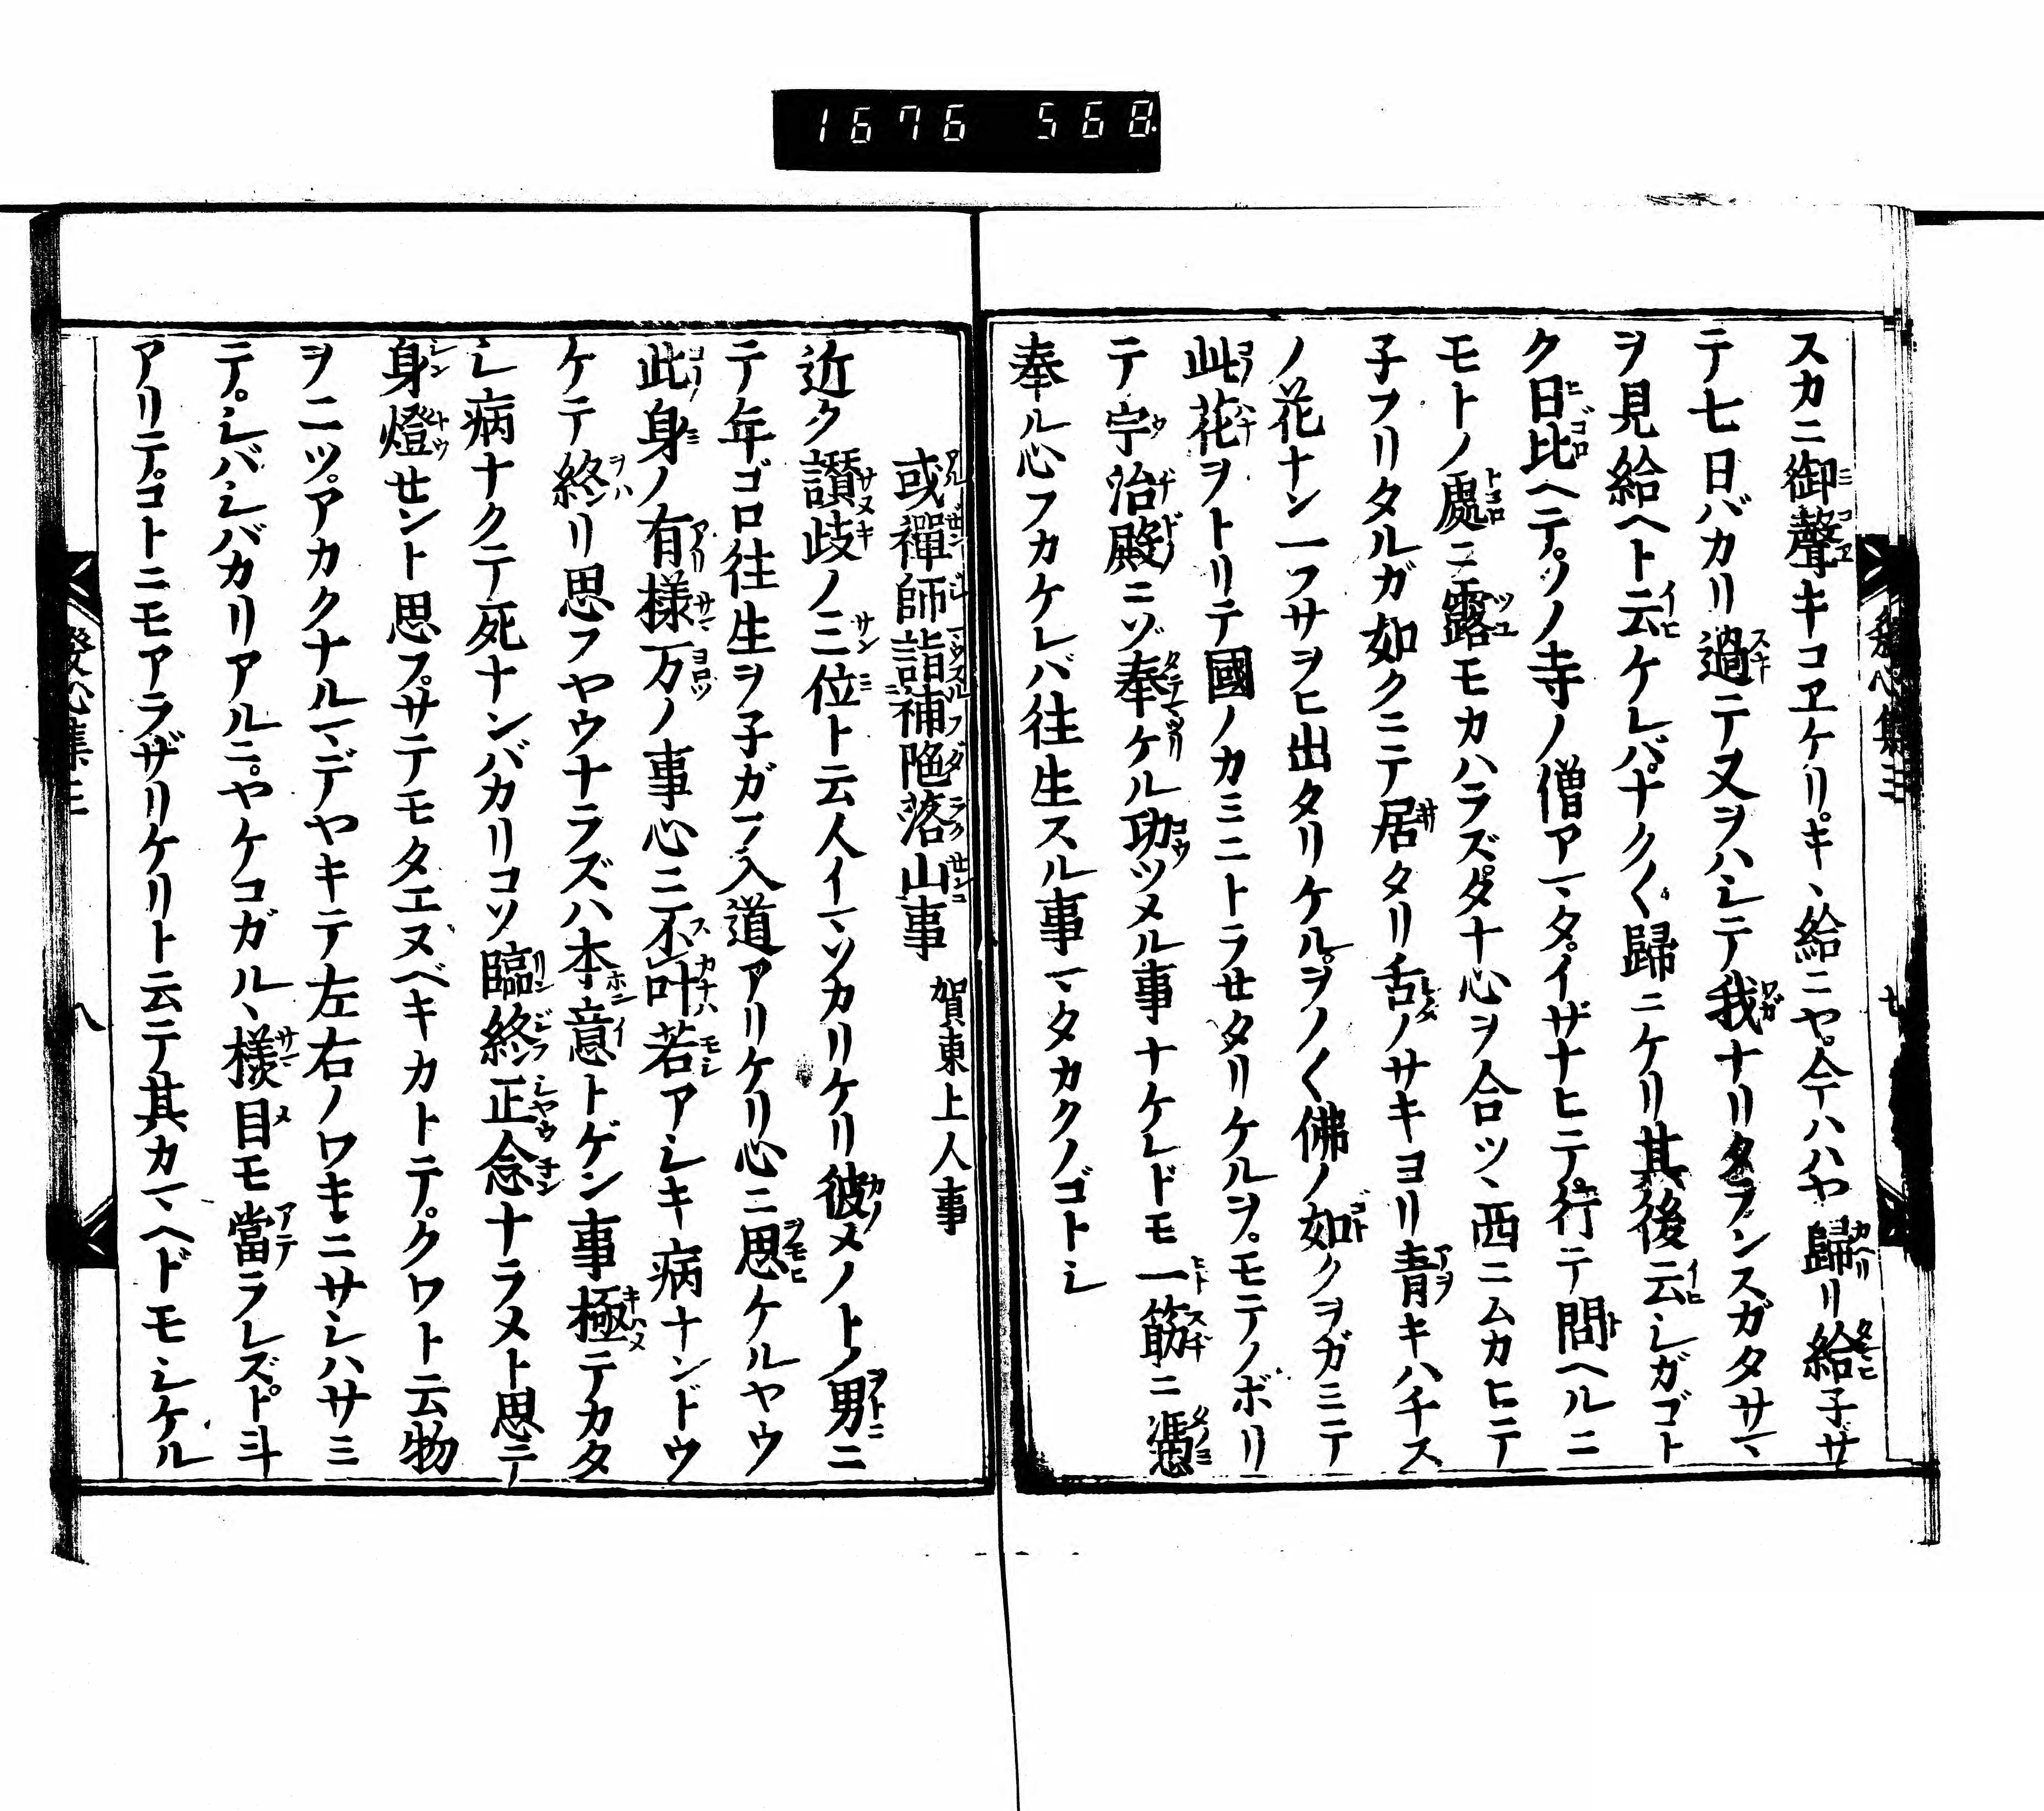 1676 568.
スカニ御聲キコヱケリ。キヽ給ニヤ。今ハハヤ歸リ給子サ
テ七日バカリ過ニテ又ヲハシテ我ナリタランスガタサマヽ
ヲ見給ヘト云ケレバ。ナク〱歸ニケリ其後云シガゴト
ク日比ヘテ。ソノ寺ノ僧アマタ。イザナヒテ。行テ問ヘルニ
モトノ處ニ露モカハラズ。タナ心ヲ合ツヽ西ニムカヒテ
子フリタルガ如クニテ居タリ舌ノサキヨリ青キハチス
ノ花ナン一フサヲヒ出タリケル。ヲノ〱佛ノ如クヲガミテ
此花ヲトリテ國ノカミニトラセタリケルヲ。モテノボリ
テ宇治殿ニゾ奉ケル功ツメル事ナケレドモ一筋ニ憑
奉ル心フカケレバ往生スル事マタカクノゴトシ
或禪師詣補陁落山事 賀東上人事
近ク讃歧ノ三位ト云人イマソカリケリ彼メノトノ男ニ
テ年ゴロ往生ヲ子ガフ入道アリケリ心ニ思ケルヤウ
此身ノ有樣万ノ事心ニ不叶若アシキ病ナンドウ
ケテ終リ思フヤウナラズハ本意トゲン事極テカタ
シ病ナクテ死ナンバカリコソ臨終正念ナラメト思テ
身燈セント思フ。サテモタエヌベキカトテ。クワト云物
ヲ二ツ。アカクナルマデヤキテ左右ノワキニサシハサミ
テ。シバシバカリアルニ。ヤケコガルヽ樣目モ當ラレズ。ト斗
アリテ。コトニモアラザリケリト云テ其カマヘドモシケル
發心集三
七
發心集三
八